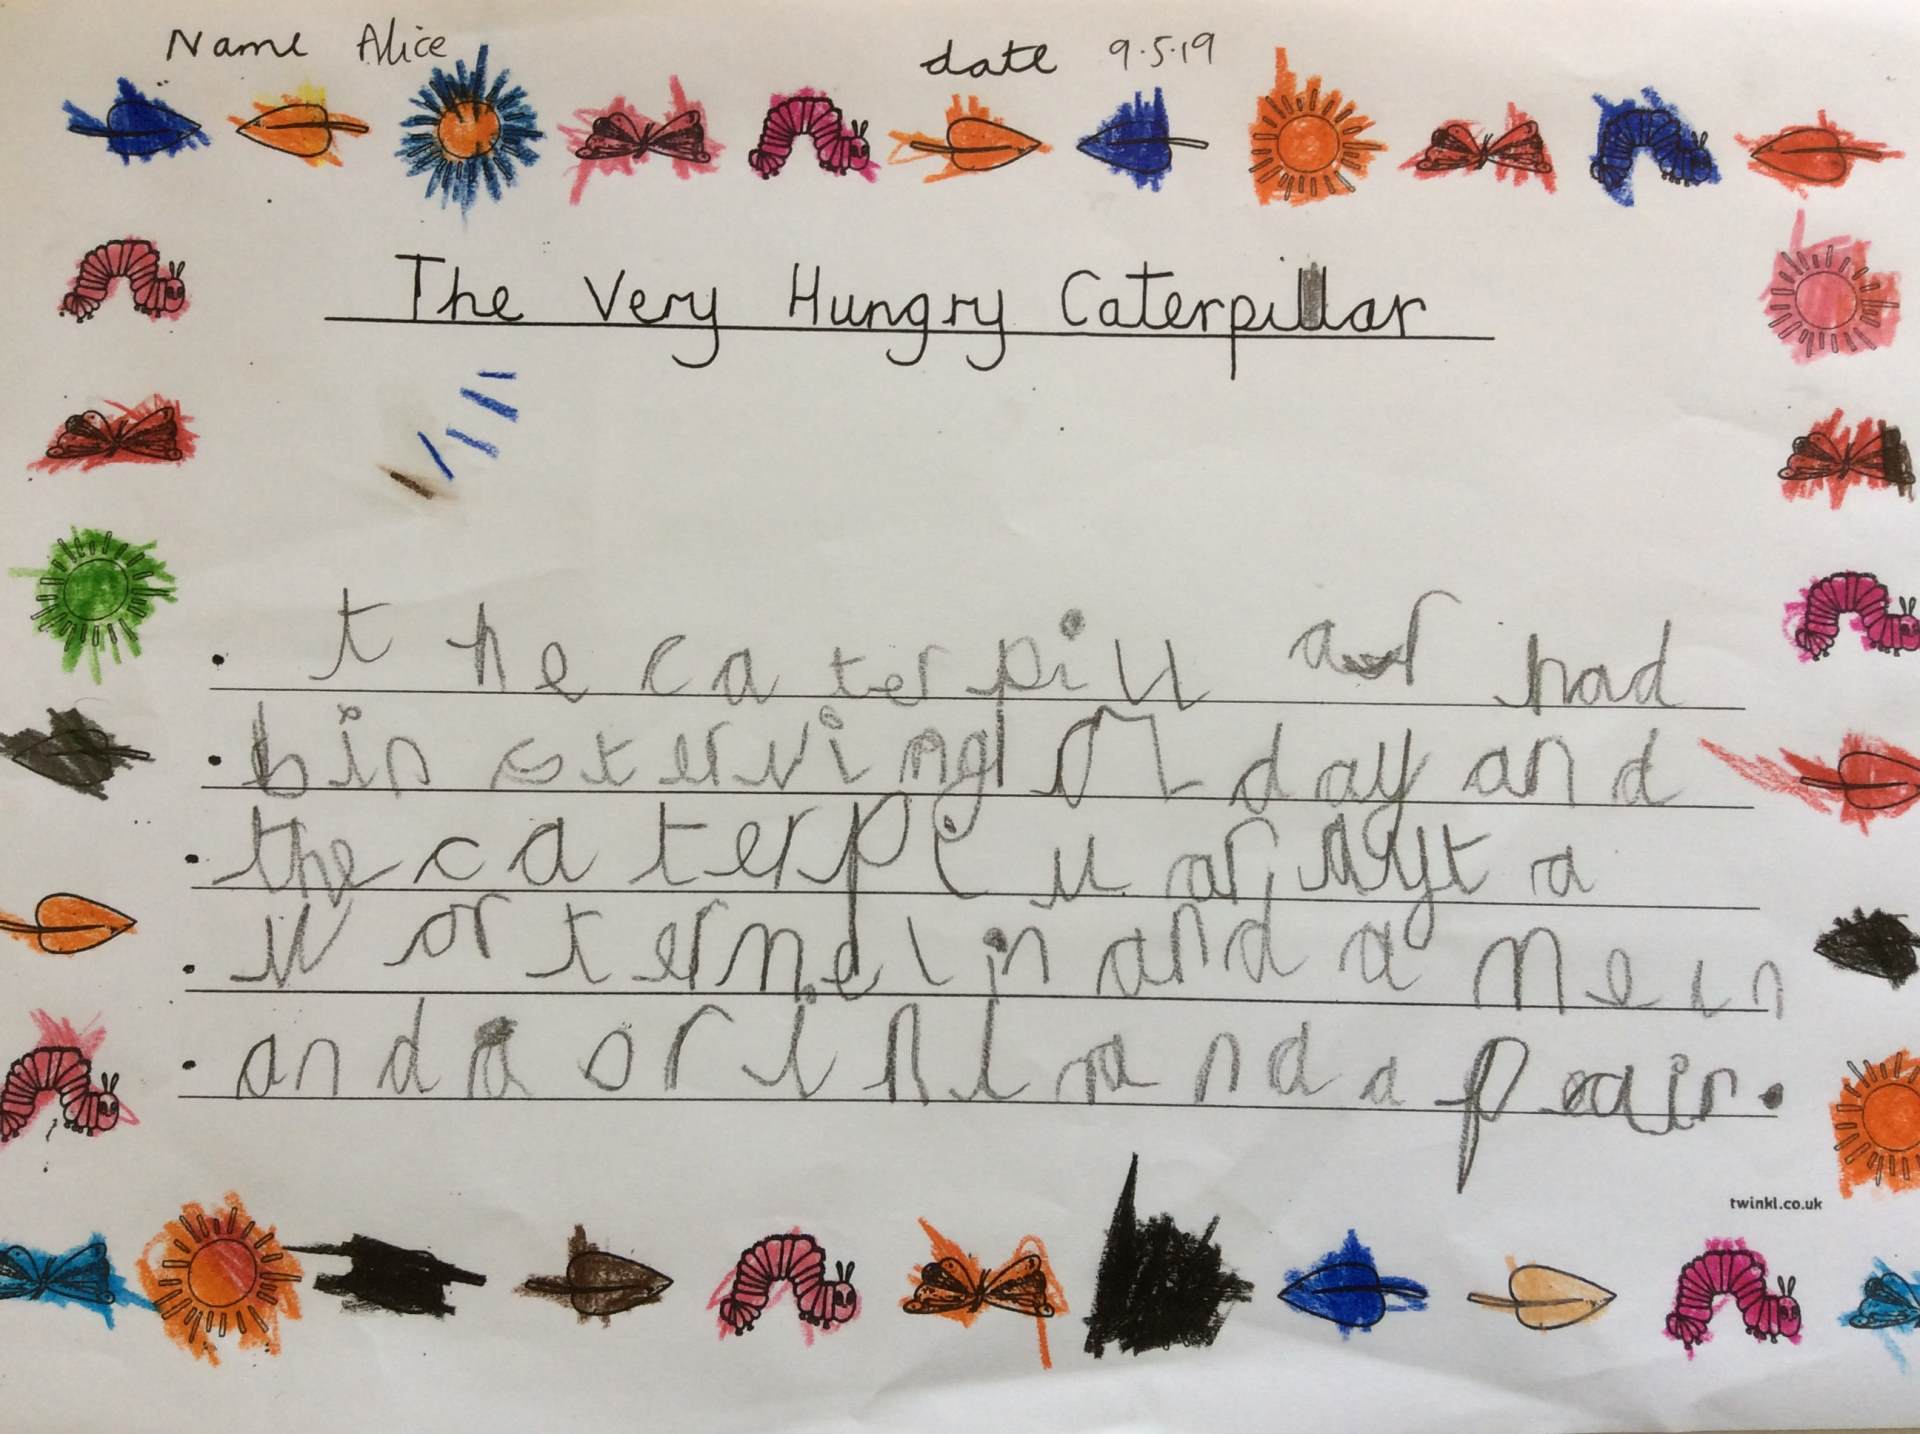 Name Alice date 9.5.19
The Very Hungry Caterpillar
. the caterpillar had
. bin sterving orl day and
. the caterpillar ayt a
. wortermelin and a meln
. and a orinj and a peair.
twinkl.co.uk